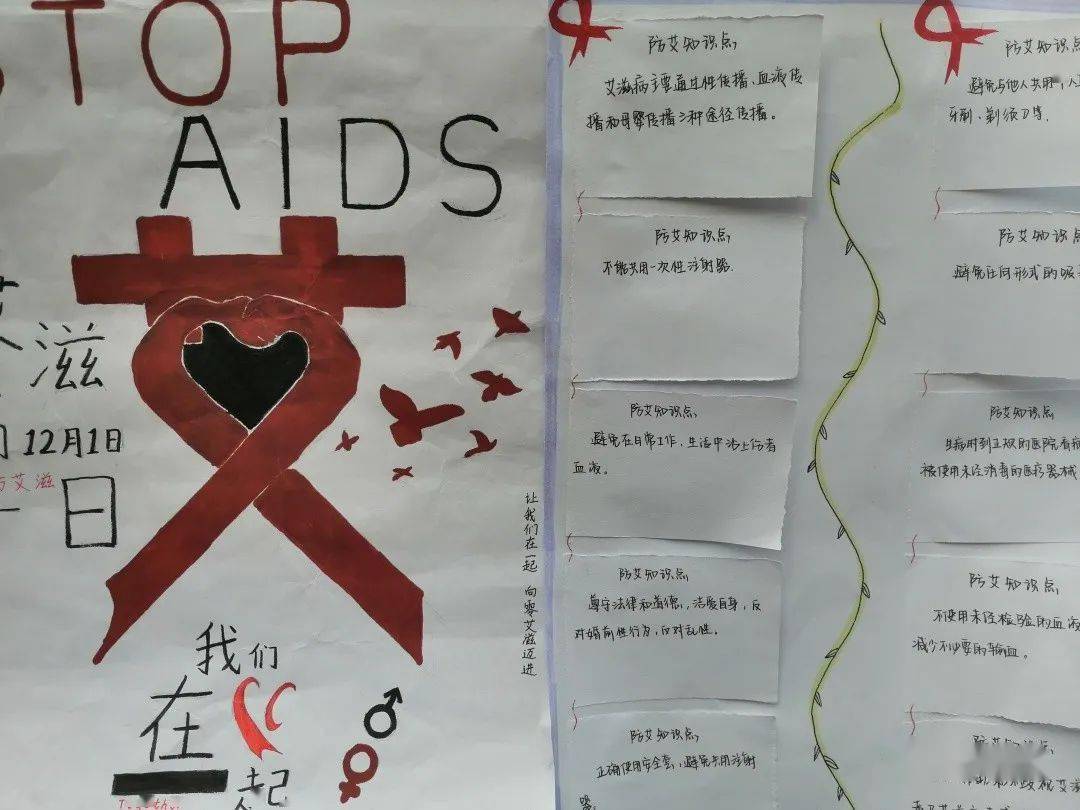 STOP
AIDS
艾
滋
12月1日
防艾滋
一日
我们
在
一起
Together
让我们在一起 向零艾滋迈进
防艾知识点
艾滋病主要通过性传播、血液传
播和母婴传播三种途径传播。
防艾知识点
不能共用一次性注射器.
防艾知识点
避免在日常工作、生活中沾上伤者
血液。
防艾知识点
遵守法律和道德,洁身自爱,反
对婚前性行为,反对乱性。
防艾知识点
正确使用安全套,避免共用注射
器。
防艾知识点
避免与他人共用,
牙刷、剃须刀等.
防艾知识点
避免任何形式的吸
防艾知识点
生病时到正规的医院看病
被使用未经消毒的医疗器械
防艾知识点
不使用未经检验的血液
减少不必要的输血。
防艾知识点